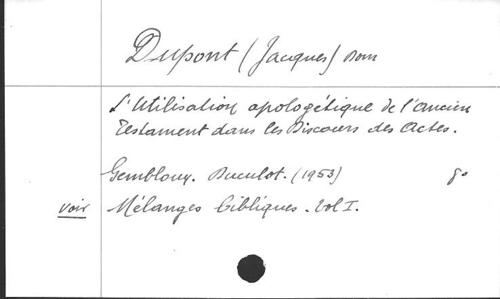 Dupont (Jacques) Dom
L'Utilisation apologétique de l'Ancien
Testament dans les Discours des Actes.
Gembloux. Duculot. (1953) 8°
voir Mélanges bibliques. Vol I.